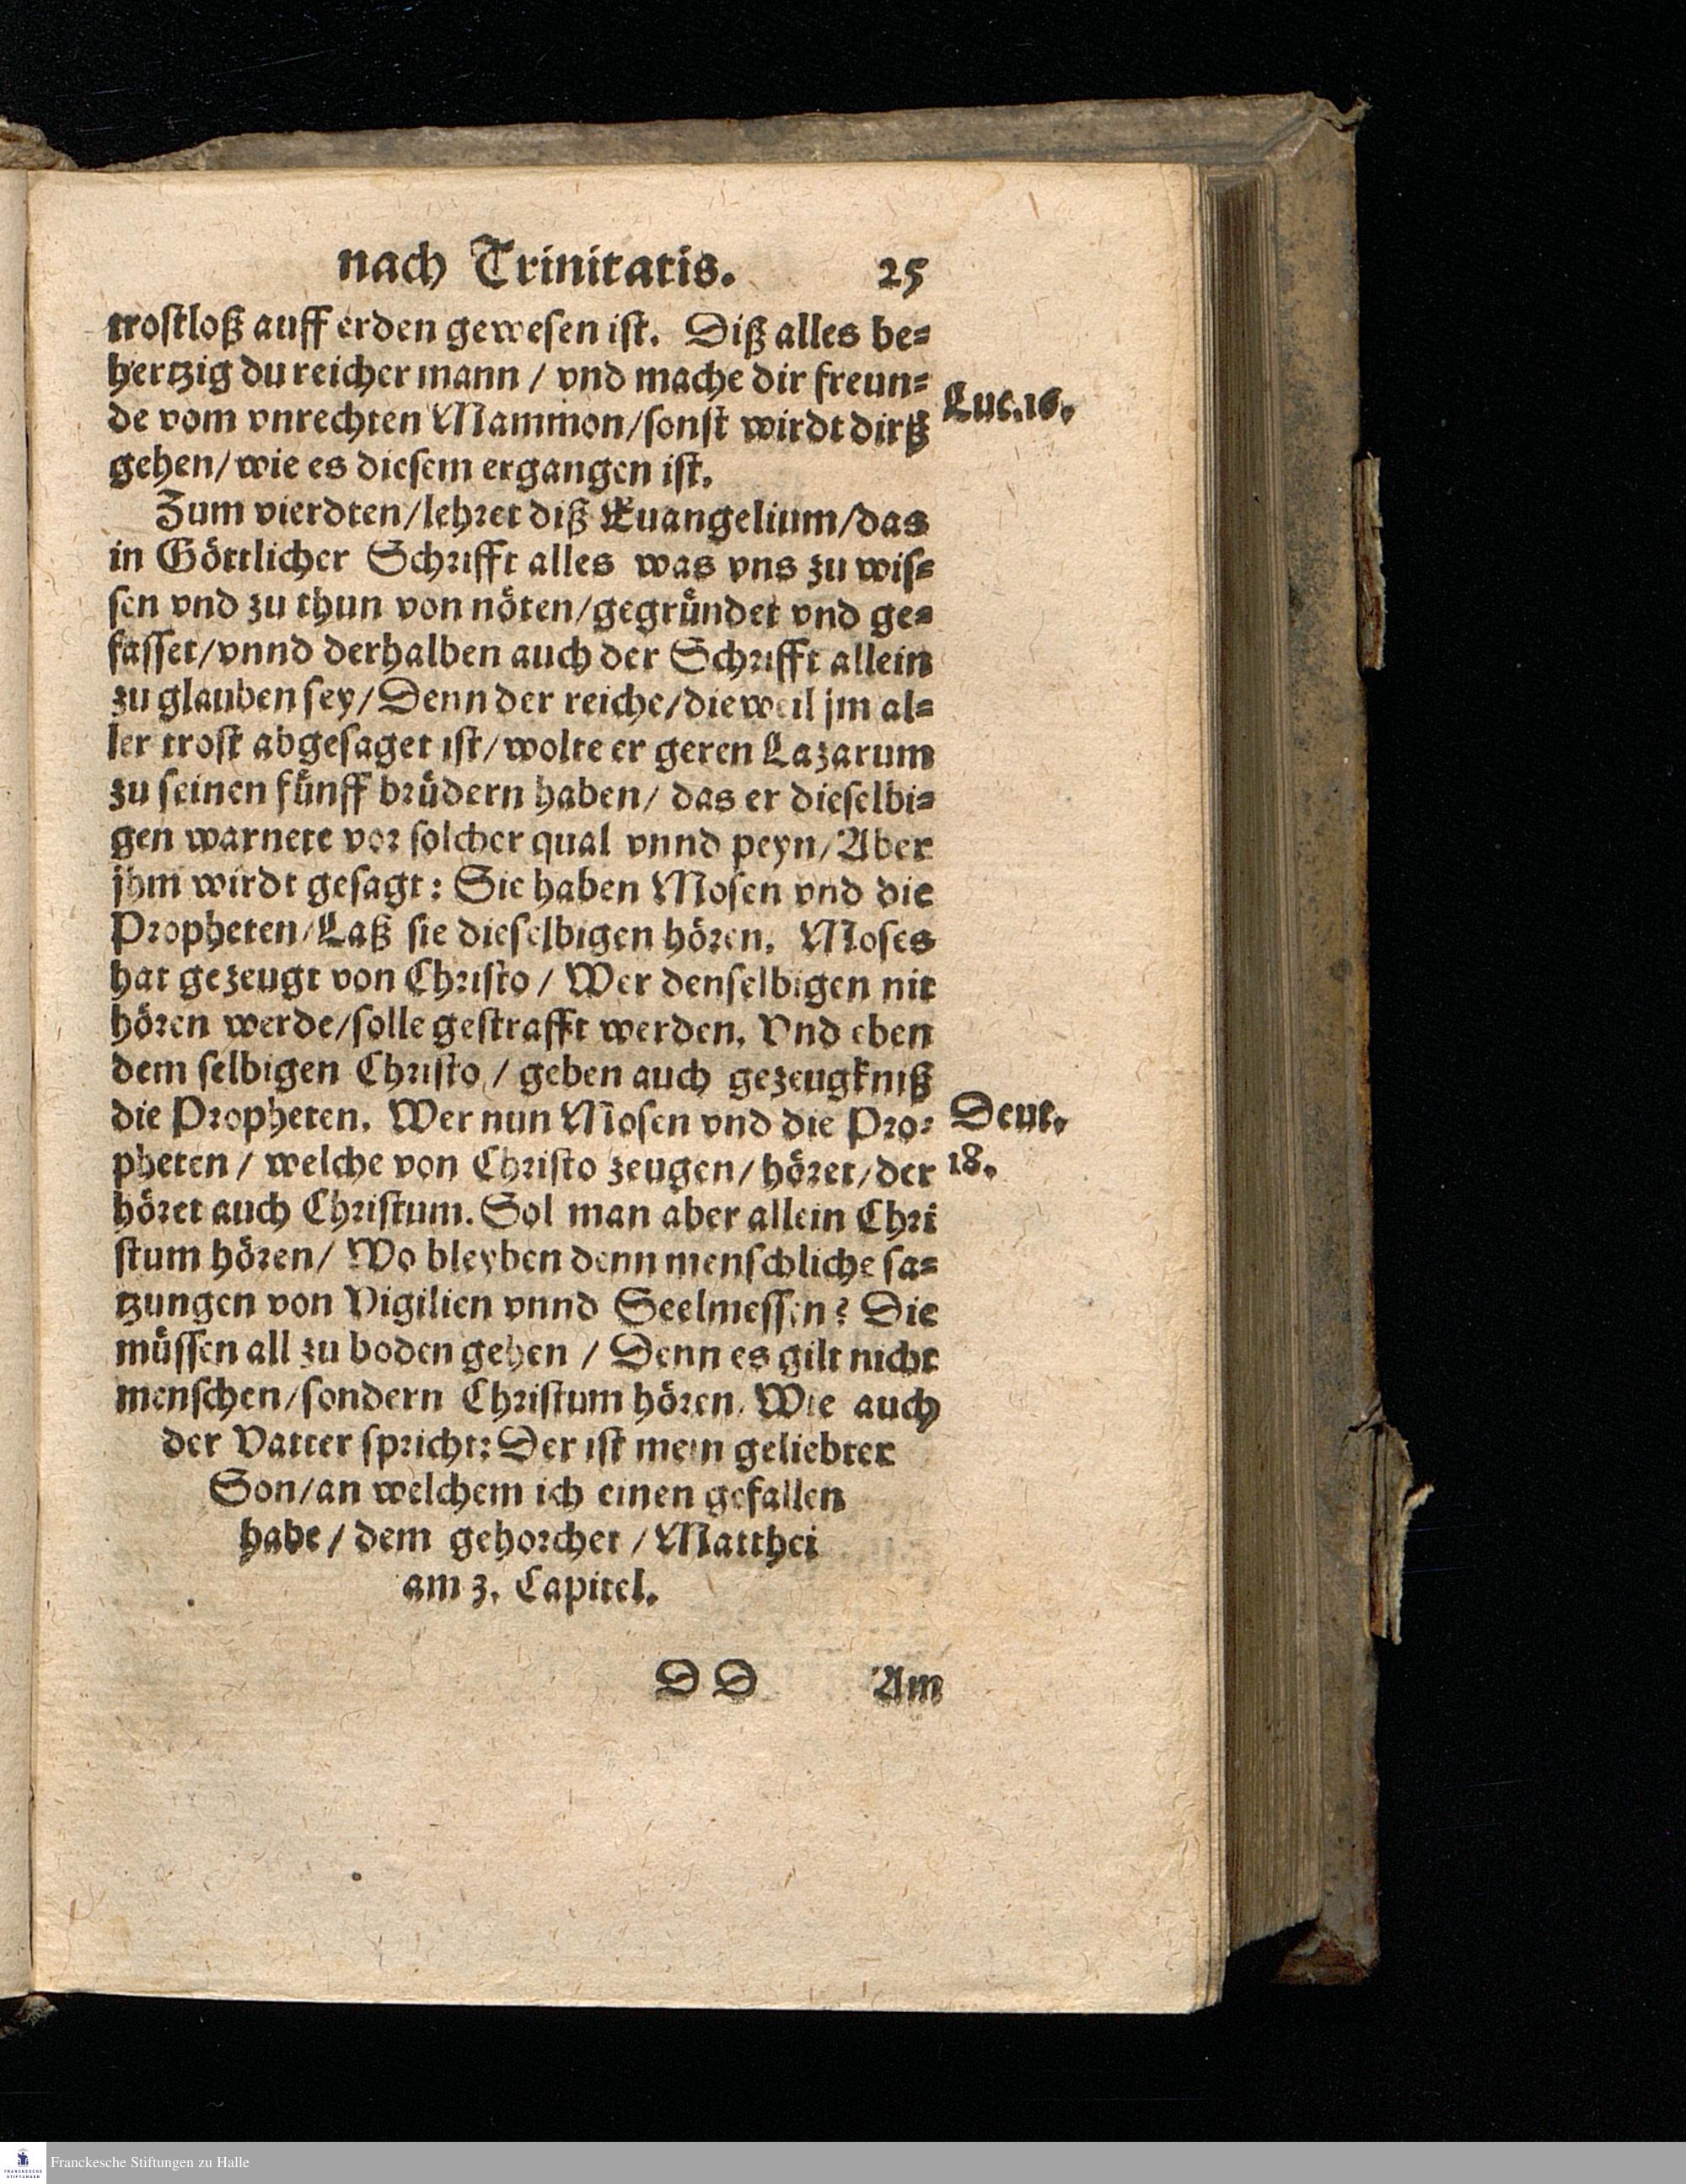 nach Trinitatis. 25
trostloß auff erden gewesen ist. Diß alles be-
hertzig du reicher mann / vnd mache dir freun-
de vom vnrechten Mammon/sonst wirdt dirß
Luc.16.
gehen/wie es diesem ergangen ist.
Zum vierdten/lehret diß Euangelium/das
in Göttlicher Schrifft alles was vns zu wis-
sen vnd zu thun von nöten/gegründet vnd ge-
fasset/vnnd derhalben auch der Schrifft allein
zu glauben sey/Denn der reiche/dieweil jm al-
ler trost abgesaget ist/wolte er geren Lazarum
zu seinen fünff brüdern haben/ das er dieselbi-
gen warnete vor solcher qual vnnd peyn/Aber
jhm wirdt gesagt: Sie haben Mosen vnd die
Propheten/Laß sie dieselbigen hören. Moses
hat gezeugt von Christo / Wer denselbigen nit
hören werde/solle gestrafft werden. Vnd eben
dem selbigen Christo / geben auch gezeugkniß
die Propheten. Wer nun Mosen vnd die Pro-
Deut.
pheten / welche von Christo zeugen/höret/der
18.
höret auch Christum. Sol man aber allein Chri
stum hören/ Wo bleyben denn menschliche sa-
tzungen von Vigilien vnnd Seelmessen? Die
müssen all zu boden gehen / Denn es gilt nicht
menschen/sondern Christum hören. Wie auch
der Vatter spricht: Der ist mein geliebter
Son/an welchem ich einen gefallen
habe / dem gehorchet / Matthei
am 3. Capitel.
D D Am
Franckesche Stiftungen zu Halle
FRANCKESCHE
STIFTUNGEN